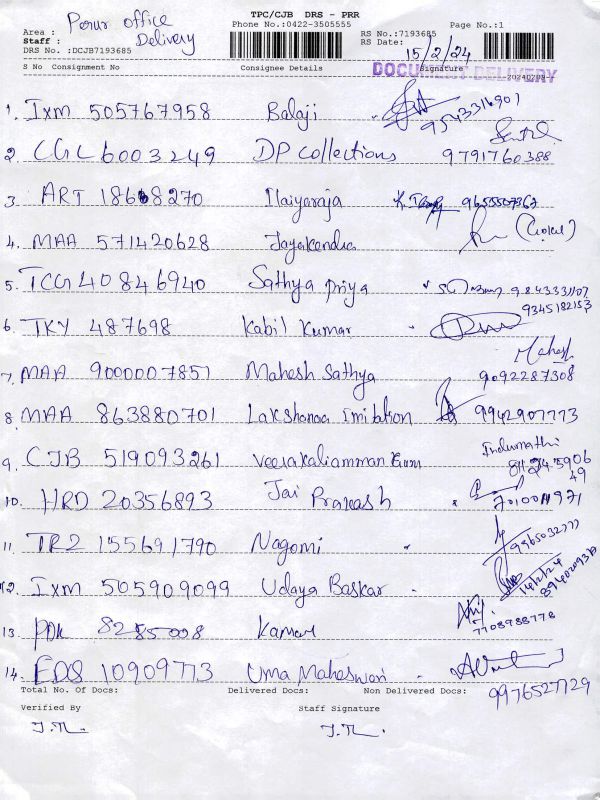 TPC/CJB DRS - PRR
Area : Perur office
Phone No.:0422-3505555
Page No.:1
Staff : Delivery
RS No.:7193685
DRS No. :DCJB7193685
RS Date: 15/2/24
S No Consignment No Consignee Details Signature
DOCUMENT DELIVERY
1. Ixm 505767958 Balaji 9543316901
2. CGL6003249 DP collections 9791760388
3. ART 18668270 Ilaiyaraja 9655507362
4. MAA 571420628 Jayakendra (Gokul)
5. TCG40846940 Sathya priya 9843331107
9345182153
6. TKY 487698 Kabil Kumar
Mahesh
7. MAA 9000007851 Mahesh Sathya 9092287308
8. MAA 863880701 Lakshanaa Imitation 9942907773
Indumathi
9. CJB 519093261 Veerakaliamman
10. HRD 20356893 Jai Prakash
11. TRZ 155691790 Nagomi 9965032777
12. Ixm 505909099 Udaya Baskar 14/2/24
13. PDK 8285008 Kumar 7708988778
14. EDS 10909773 Uma Maheswari
9976527729
Total No. Of Docs: Delivered Docs: Non Delivered Docs:
Verified By Staff Signature